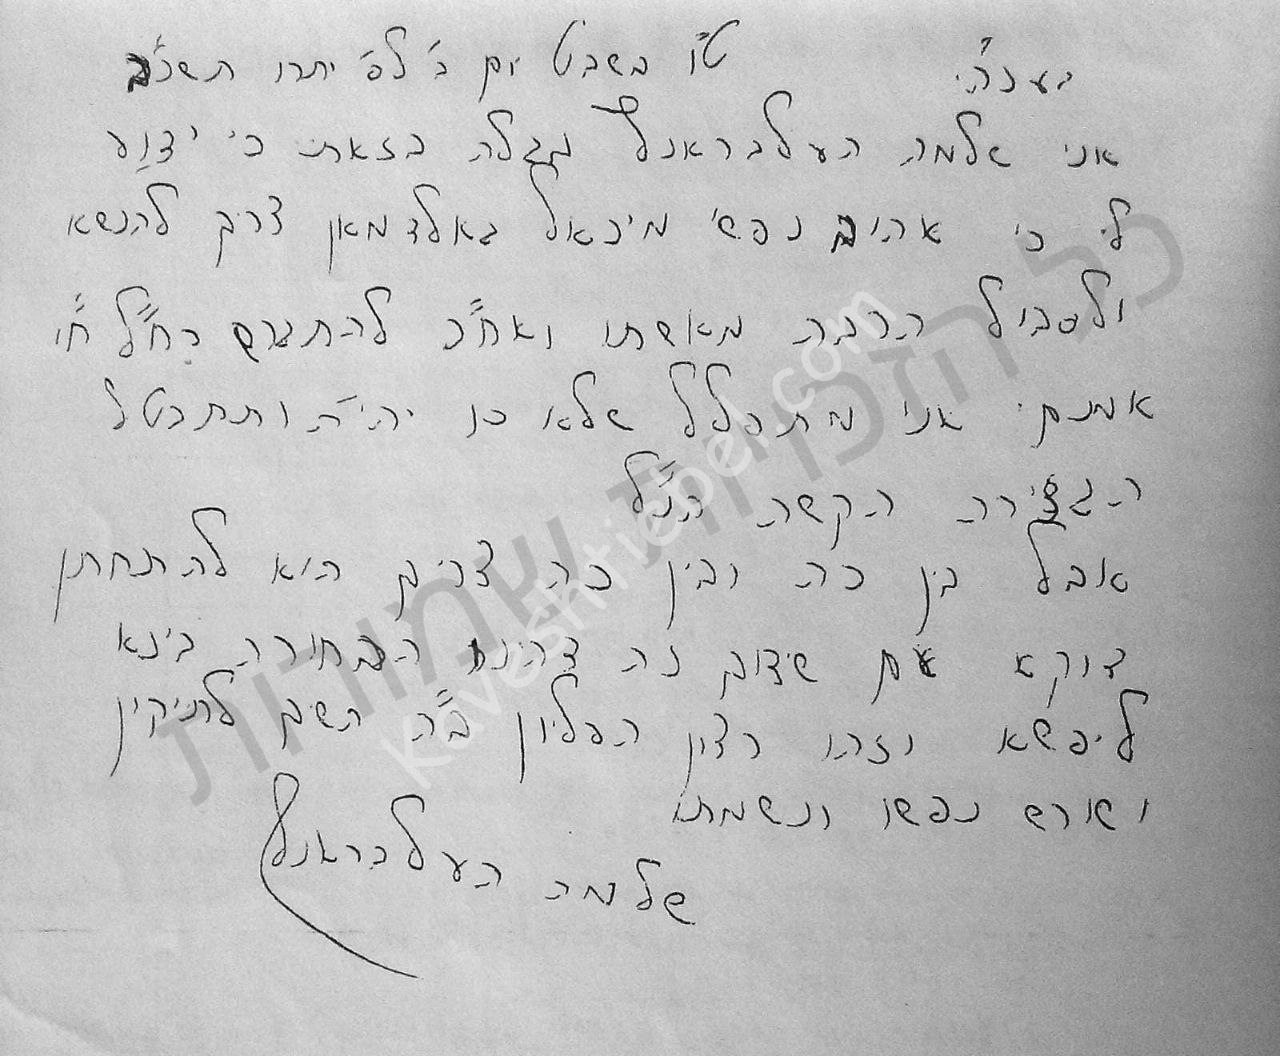 בעזה"י ט"ו בשבט יום ב' לפ' יתרו תשנ"ב
אני שלמה העלבראנץ מגלה בזאת כי ידוע
לי כי אהוב נפשי מיכאל גאלדמאן צריך להנשא
ולסבול הרבה מאשתו ואח"כ להתגרש רח"ל ח"ו
אמנם אני מתפלל שלא כן יהי' ותתבטל
הגזירה הקשה הנ"ל
אבל בין כה ובין כה צריך הוא להתחתן
דוקא עם שידוך זה דהיינו הבחורה בינא
ליפשא וזהו רצון העליון ב"ה השיך לתיקון
ושורש נפשו ונשמתו
שלמה העלבראנץ
כל הזכויות שמורות
Kaveshtiebel.com